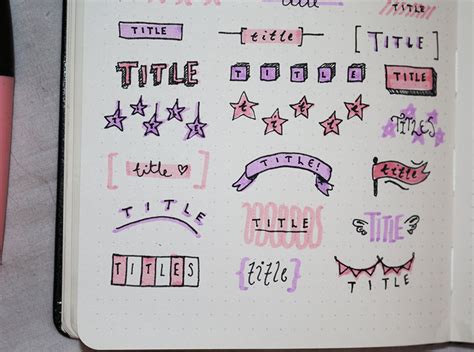 title TITLE
TITLE [title] [TITLE]
TITLE TITLE TITLE
TITLES
[title ♡] TITLE! title
TITLE TITLE TITLE
TITLES {title} TITLE